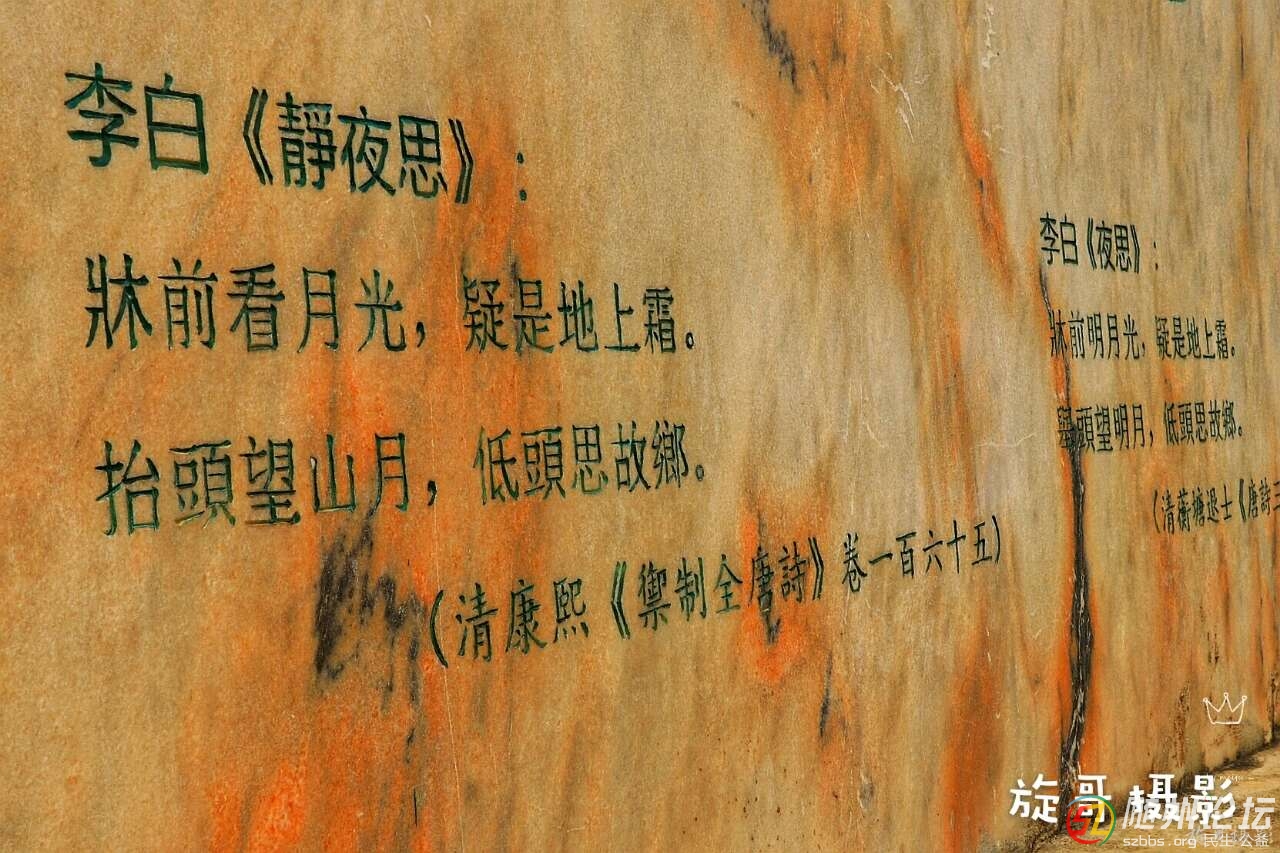 李白《靜夜思》：
牀前看月光，疑是地上霜。
抬頭望山月，低頭思故鄉。
（清康熙《禦制全唐詩》卷一百六十五）
李白《夜思》：
牀前明月光，疑是地上霜。
舉頭望明月，低頭思故鄉。
（清蘅塘退士《唐詩三
旋哥摄影
随州论坛
szbbs.org 民生公益